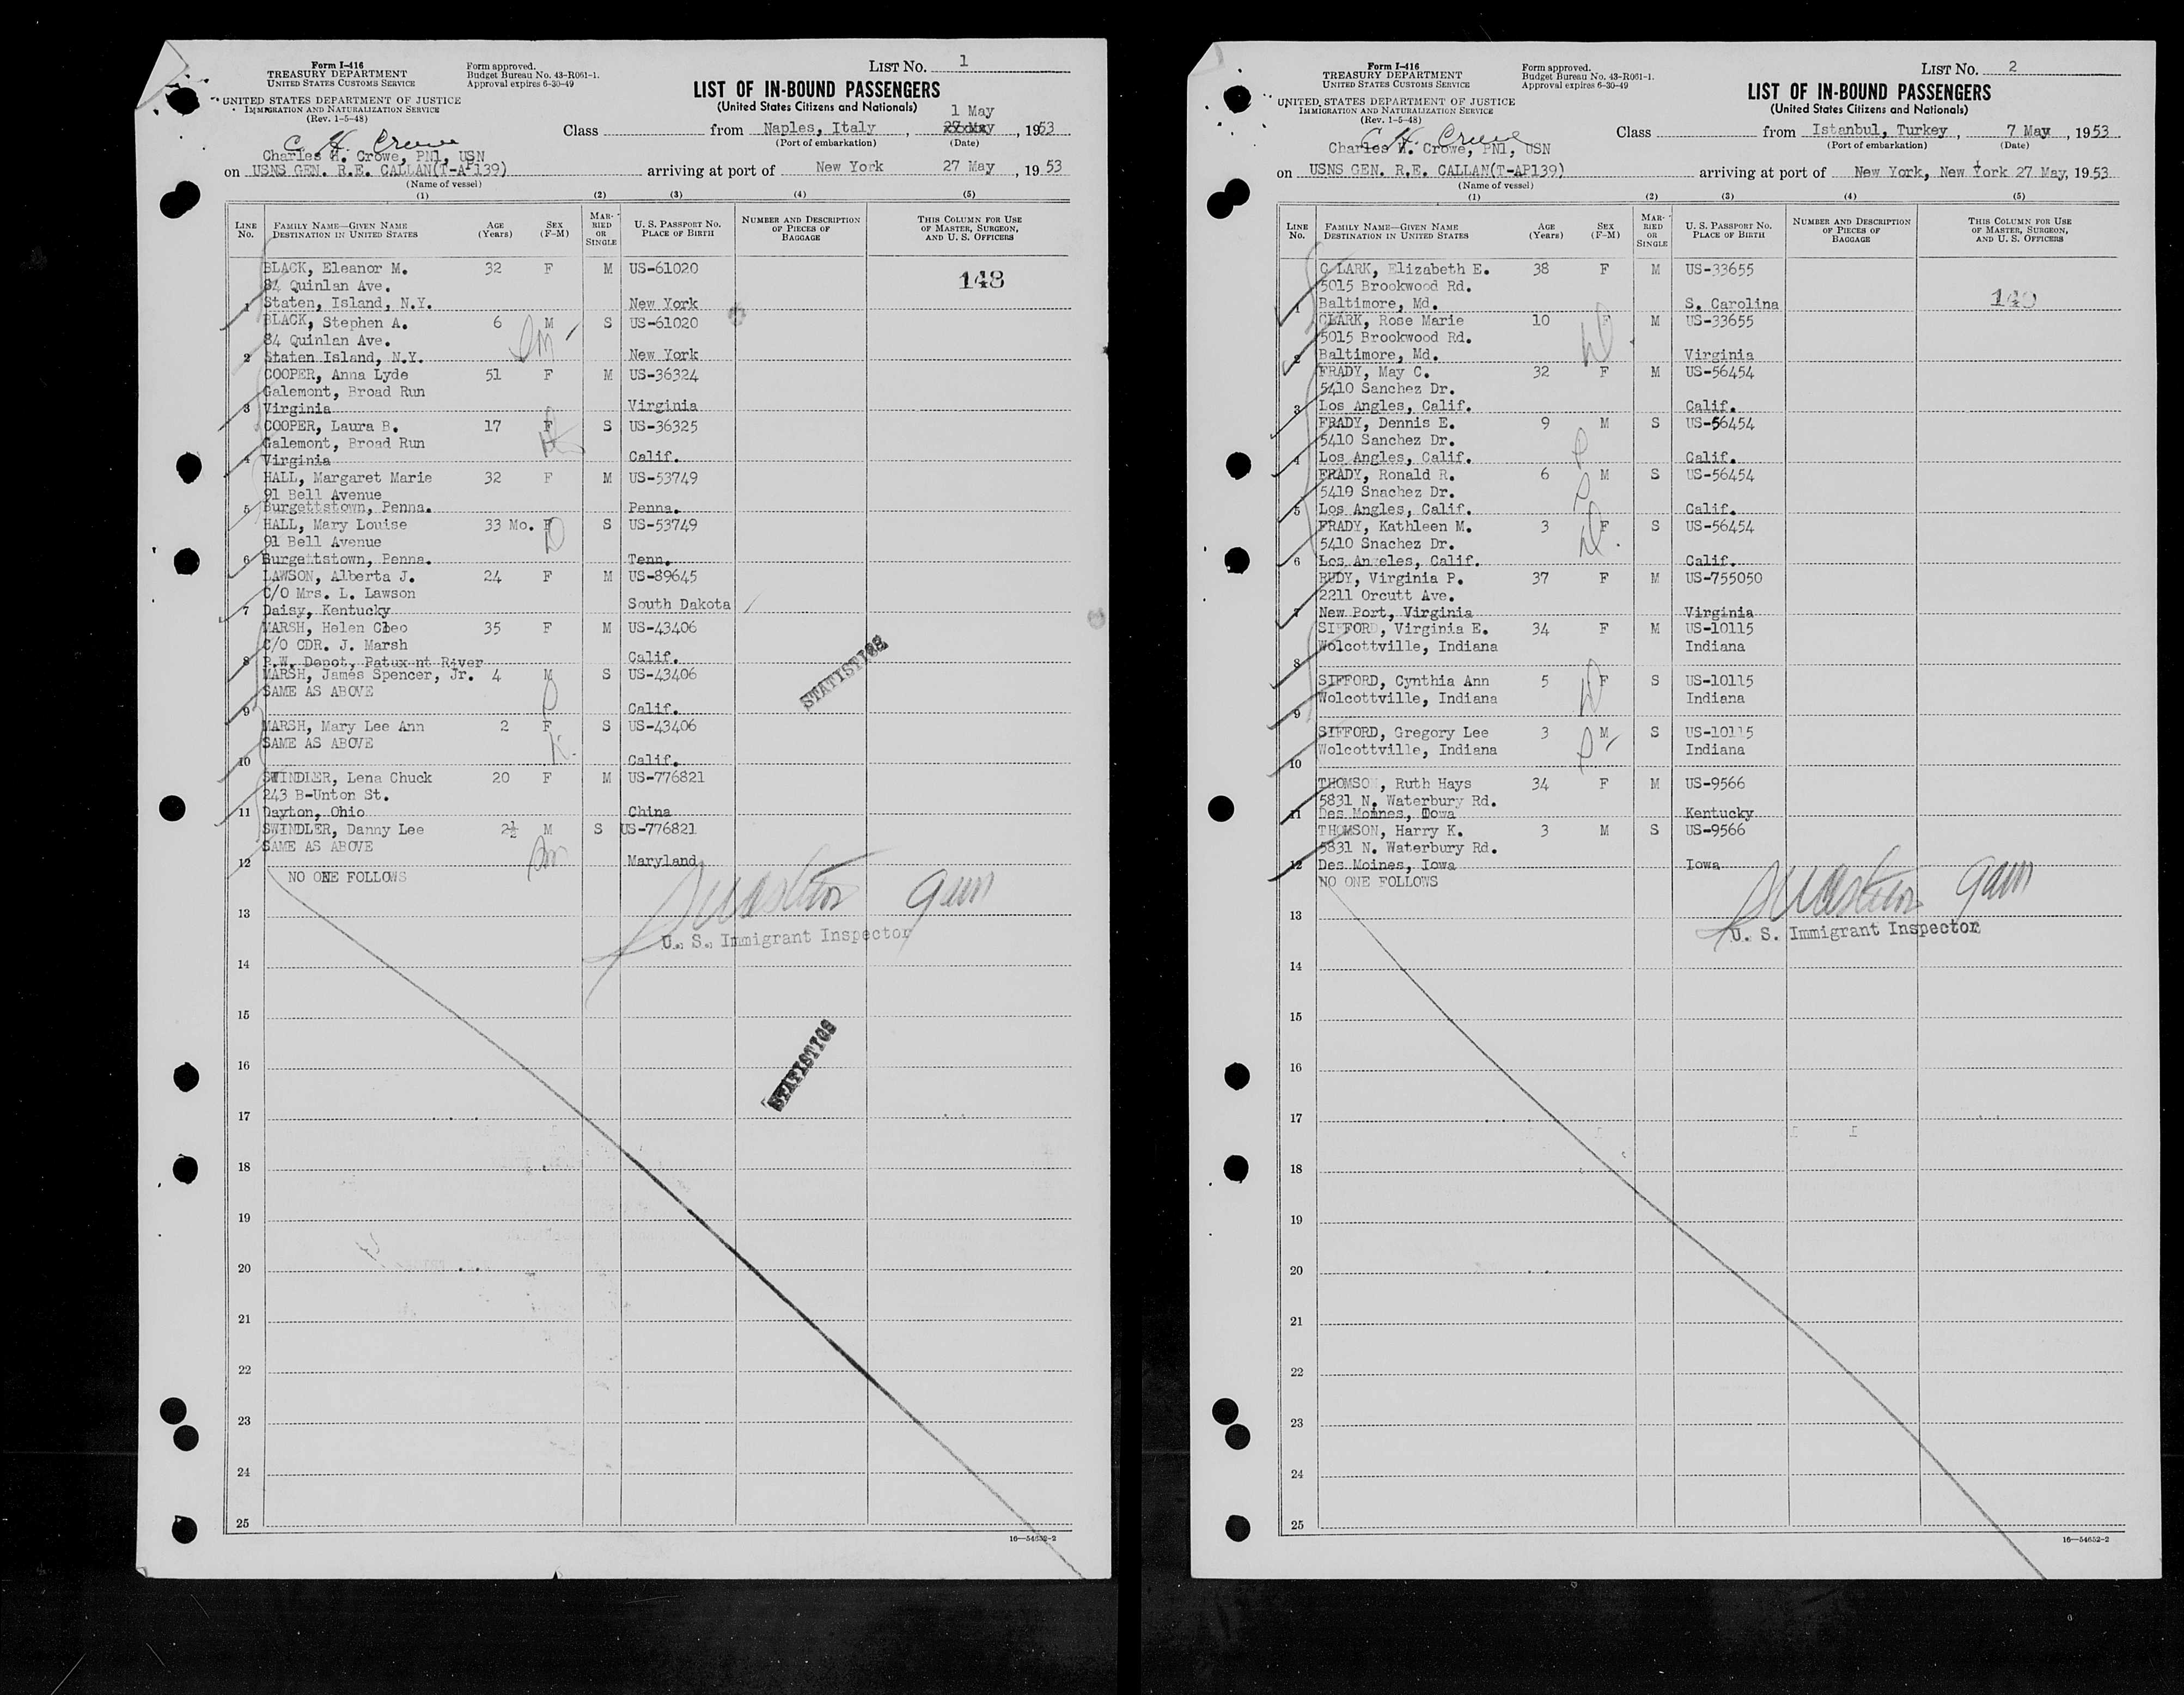 Form I-416
TREASURY DEPARTMENT
UNITED STATES CUSTOMS SERVICE
Form approved.
Budget Bureau No. 43-R061-1.
Approval expires 6-30-49
LIST No. 1
UNITED STATES DEPARTMENT OF JUSTICE
IMMIGRATION AND NATURALIZATION SERVICE
(Rev. 1-5-48)
LIST OF IN-BOUND PASSENGERS
(United States Citizens and Nationals)
C. H. Crowe
Charles H. Crowe, PN1, USN
1 May
Class from Naples, Italy, 27 May, 1953
(Port of embarkation) (Date)
on USNS GEN. R.E. CALLAN(T-AP139) arriving at port of New York 27 May, 1953
(Name of vessel)
(1) (2) (3) (4) (5)
LINE No. FAMILY NAME—GIVEN NAME DESTINATION IN UNITED STATES AGE (Years) SEX (F-M) MARRIED OR SINGLE U. S. PASSPORT NO. PLACE OF BIRTH NUMBER AND DESCRIPTION OF PIECES OF BAGGAGE THIS COLUMN FOR USE OF MASTER, SURGEON, AND U. S. OFFICERS
BLACK, Eleanor M. 32 F M US-61020 148
84 Quinlan Ave.
1 Staten, Island, N.Y. New York
BLACK, Stephen A. 6 M S US-61020
84 Quinlan Ave.
2 Staten Island, N.Y. New York
COOPER, Anna Lyde 51 F M US-36324
Galemont, Broad Run
3 Virginia Virginia
COOPER, Laura B. 17 F S US-36325
Galemont, Broad Run
4 Virginia Calif.
HALL, Margaret Marie 32 F M US-53749
91 Bell Avenue
5 Burgettstown, Penna. Penna.
HALL, Mary Louise 33 Mo. F S US-53749
91 Bell Avenue
6 Burgettstown, Penna. Tenn.
LAWSON, Alberta J. 24 F M US-89645
C/O Mrs. L. Lawson
7 Daisy, Kentucky South Dakota
MARSH, Helen Cleo 35 F M US-43406
C/O CDR. J. Marsh
8 P.W. Depot, Patux nt River Calif.
MARSH, James Spencer, Jr. 4 M S US-43406
SAME AS ABOVE
9 Calif.
MARSH, Mary Lee Ann 2 F S US-43406
SAME AS ABOVE
10 Calif.
SWINDLER, Lena Chuck 20 F M US-776821
243 B-Unton St.
11 Dayton, Ohio China
SWINDLER, Danny Lee 2½ M S US-776821
SAME AS ABOVE
12 Maryland
NO ONE FOLLOWS
STATISTICS
13
U. S. Immigrant Inspector
14
15
STATISTICS
16
17
18
19
20
21
22
23
24
25
16—54652-2
Form I-416
TREASURY DEPARTMENT
UNITED STATES CUSTOMS SERVICE
Form approved.
Budget Bureau No. 43-R061-1.
Approval expires 6-30-49
LIST No. 2
UNITED STATES DEPARTMENT OF JUSTICE
IMMIGRATION AND NATURALIZATION SERVICE
(Rev. 1-5-48)
LIST OF IN-BOUND PASSENGERS
(United States Citizens and Nationals)
C. H. Crowe
Charles H. Crowe, PN1, USN
Class from Istanbul, Turkey, 7 May, 1953
(Port of embarkation) (Date)
on USNS GEN. R.E. CALLAN(T-AP139) arriving at port of New York, New York 27 May, 1953
(Name of vessel)
(1) (2) (3) (4) (5)
LINE No. FAMILY NAME—GIVEN NAME DESTINATION IN UNITED STATES AGE (Years) SEX (F-M) MARRIED OR SINGLE U. S. PASSPORT NO. PLACE OF BIRTH NUMBER AND DESCRIPTION OF PIECES OF BAGGAGE THIS COLUMN FOR USE OF MASTER, SURGEON, AND U. S. OFFICERS
CLARK, Elizabeth E. 38 F M US-33655
5015 Brookwood Rd.
1 Baltimore, Md. S. Carolina
CLARK, Rose Marie 10 F M US-33655
5015 Brookwood Rd.
2 Baltimore, Md. Virginia
FRADY, May C. 32 F M US-56454
5410 Sanchez Dr.
3 Los Angles, Calif. Calif.
FRADY, Dennis E. 9 M S US-56454
5410 Sanchez Dr.
4 Los Angles, Calif. Calif.
FRADY, Ronald R. 6 M S US-56454
5410 Snachez Dr.
5 Los Angles, Calif. Calif.
FRADY, Kathleen M. 3 F S US-56454
5410 Snachez Dr.
6 Los Angeles, Calif. Calif.
RUDY, Virginia P. 37 F M US-755050
2211 Orcutt Ave.
7 New Port, Virginia Virginia
SIFFORD, Virginia E. 34 F M US-10115
Wolcottville, Indiana Indiana
8
SIFFORD, Cynthia Ann 5 F S US-10115
Wolcottville, Indiana Indiana
9
SIFFORD, Gregory Lee 3 M S US-10115
Wolcottville, Indiana Indiana
10
THOMSON, Ruth Hays 34 F M US-9566
5831 N. Waterbury Rd.
11 Des Moines, Iowa Kentucky
THOMSON, Harry K. 3 M S US-9566
5831 N. Waterbury Rd.
12 Des Moines, Iowa Iowa
NO ONE FOLLOWS
13
U. S. Immigrant Inspector
14
15
16
17
18
19
20
21
22
23
24
25
16—54652-2